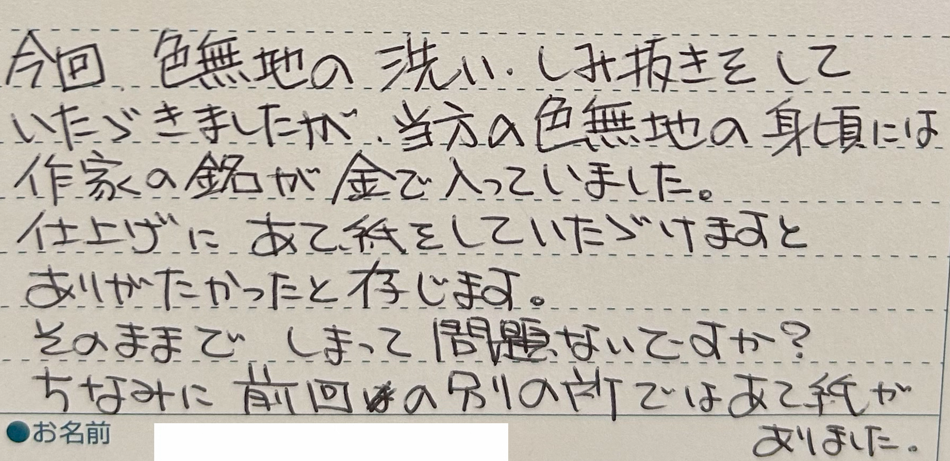 今回、色無地の洗い、しみ抜きをして
いただきましたが、当方の色無地の身頃には
作家の銘が金で入っていました。
仕上げに あて紙をしていただけますと
ありがたかったと存じます。
そのままで しまって問題ないですか？
ちなみに前回の別の所ではあて紙が
ありました。
●お名前